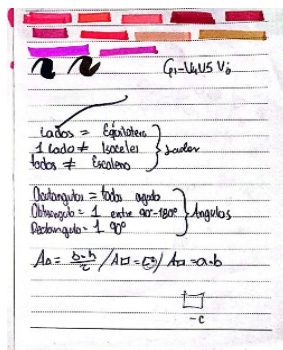 lados = Equilatero
1 lado ≠ Isoceles
todos ≠ Escaleno
Lados
Acutangulo = todos agudo
Obtusangulo = 1 entre 90°-180°
Rectangulo = 1 90°
Angulos
A△ = b·h/2 / A□ = / A▭ = a·b
-c